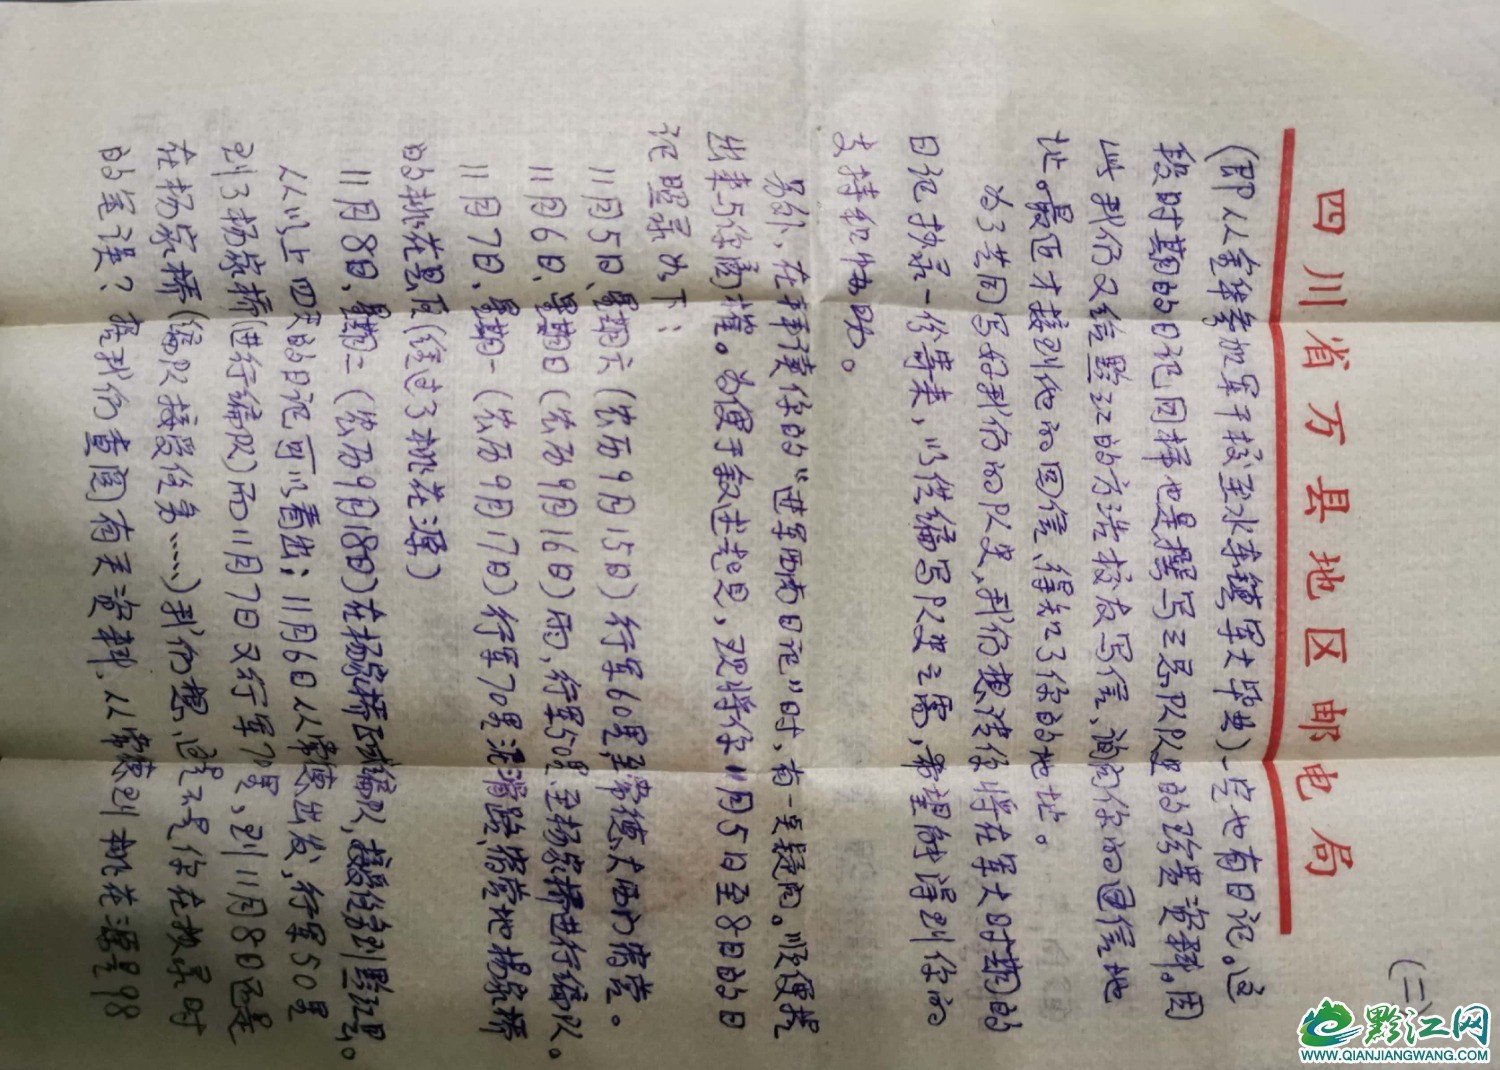 (二)
四川省万县地区邮电局
(即从宣传参加军干校至水东镇军大毕业)一定也有日记。这
段时期的日记同样也是撰写三总队队史的珍贵资料。因
此我们又给黔江的方浩校友写信、询问你的通信地
址。最近才接到他的回信、得知了你的地址。
为了共同写好我们的队史,我们想请你将在军大时期的
日记抄录一份寄来,以供编写队史之需,希望能得到你的
支持和协助。
另外,在拜读你的"进军西南日记"时,有一点疑问。顺便提
出来与你商榷。为便于叙述起见,现将你11月5日至8日的日
记照录如下:
11月5日、星期六(农历9月15日)行军60里,至常德大西门宿营。
11月6日、星期日(农历9月16日)雨,行军50里、至杨家桥进行编队。
11月7日、星期一(农历9月17日)行军70里泥滑路,宿营地杨家桥
的桃花景区(经过了桃花源)
11月8日、星期二(农历9月18日)在杨家桥区域编队,接任务到黔江县。
从以上四天的日记可以看出:11月6日从常德出发,行军50里
到了杨家桥(进行编队)而11月7日又行军70里、到11月8日还是
在杨家桥(编队接受任务……)我们想、这是不是你在抄录时
的笔误?据我们查阅有关资料、从常德到桃花源是98
黔江网
WWW.QIANJIANGWANG.COM